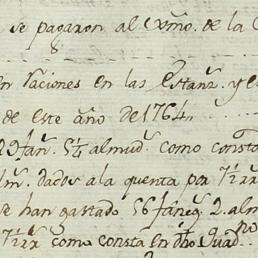 se pagaron al Exmo. de la C
en raciones en las Estanz. y e
de este año de 1764
9 fan. 5¼ almud. como consta
lm. dados a la quenta por
se han gastado 56 faneg. 2. alm
como consta en dho Quadno